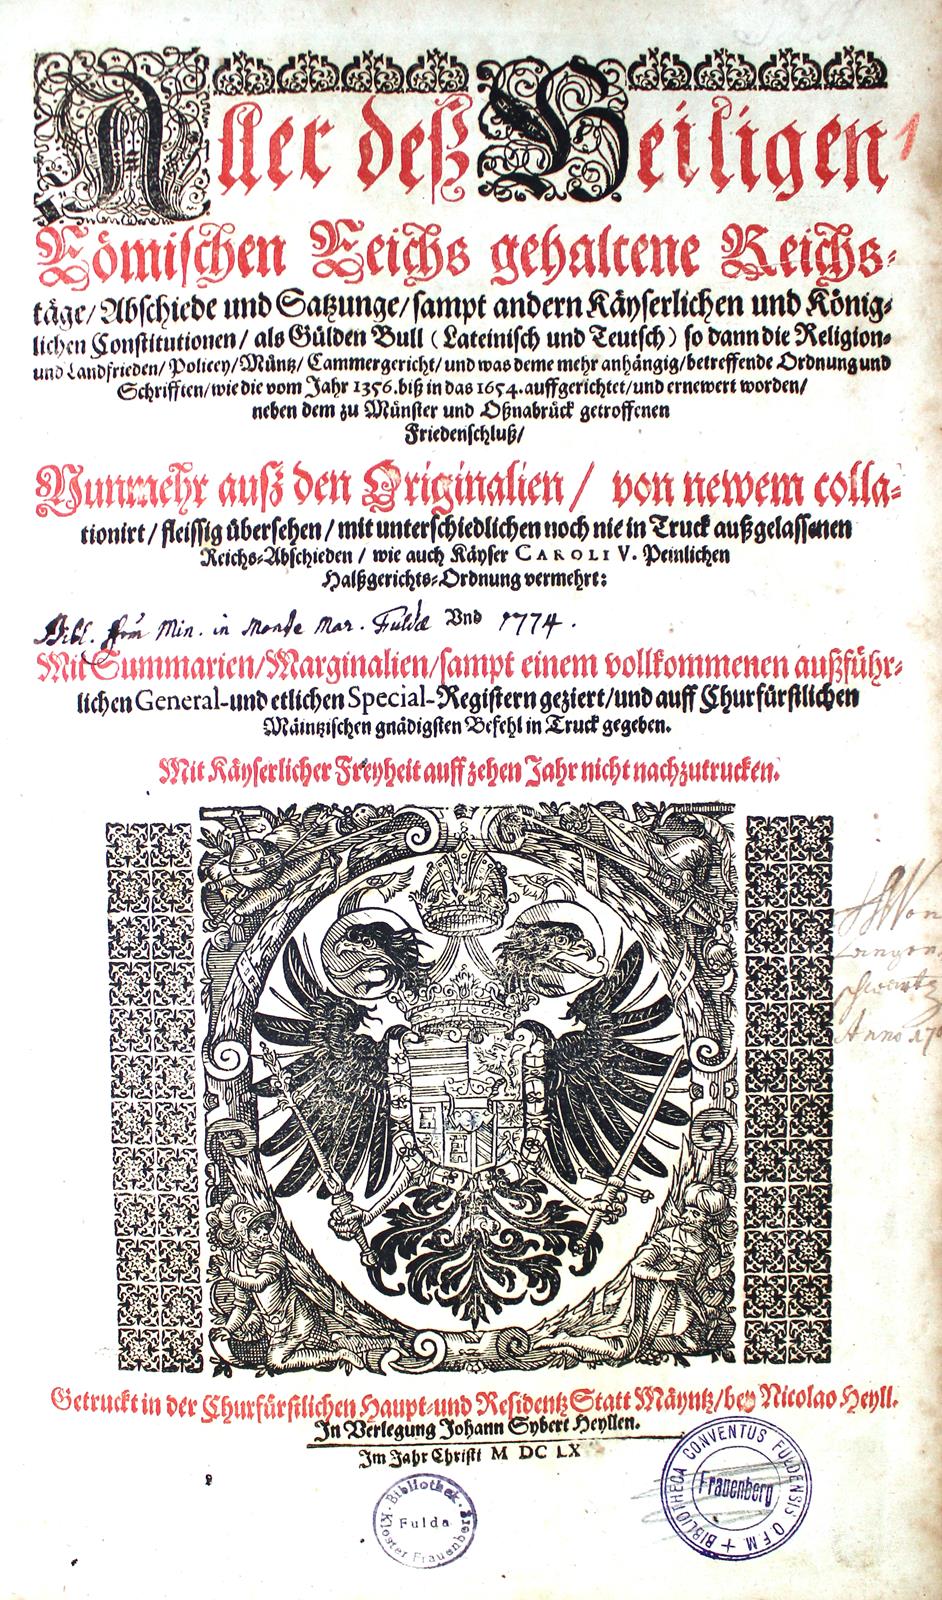 Aller deß Heiligen
Römischen Reichs gehaltene Reichs-
täge/ Abschiede und Satzunge/ sampt andern Käyserlichen und König-
lichen Constitutionen/ als Gülden Bull (Lateinisch und Teutsch) so dann die Religion-
und Landfrieden/ Policey/ Müntz/ Cammergericht/ und was deme mehr anhängig/ betreffende Ordnung und
Schrifften/ wie die vom Jahr 1356. biß in das 1654. auffgerichtet/ und ernewert worden/
neben dem zu Münster und Oßnabrück getroffenen
Friedenschluß/
Nunmehr auß den Originalien/ von newem colla-
tionirt/ fleissig übersehen/ mit unterschiedlichen noch nie in Truck außgelassenen
Reichs-Abschieden/ wie auch Käyser CAROLI V. Peinlichen
Halßgerichts-Ordnung vermehrt:
Bibl. Min. in Monte Mar. Fuldæ Und 1774.
Mit Summarien/ Marginalien/ sampt einem vollkommenen außführ-
lichen General- und etlichen Special-Registern geziert/ und auff Churfürstlichen
Mäintzischen gnädigsten Befehl in Truck gegeben.
Mit Käyserlicher Freyheit auff zehen Jahr nicht nachzutrucken.
Anno 17
Getruckt in der Churfürstlichen Haupt- und Residentz Statt Mäyntz/ bey Nicolao Heyll.
In Verlegung Johann Sybert Heyllen.
Im Jahr Christi M DC LX
Bibliothek
Fulda
Kloster Frauenberg
BIBLIOTHECA CONVENTUS FULDENSIS O.F.M. +
Frauenberg
1